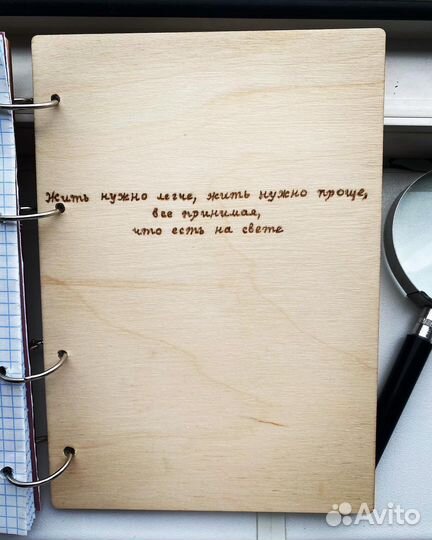 Жить нужно легче, жить нужно проще,
все принимая,
что есть на свете
Avito